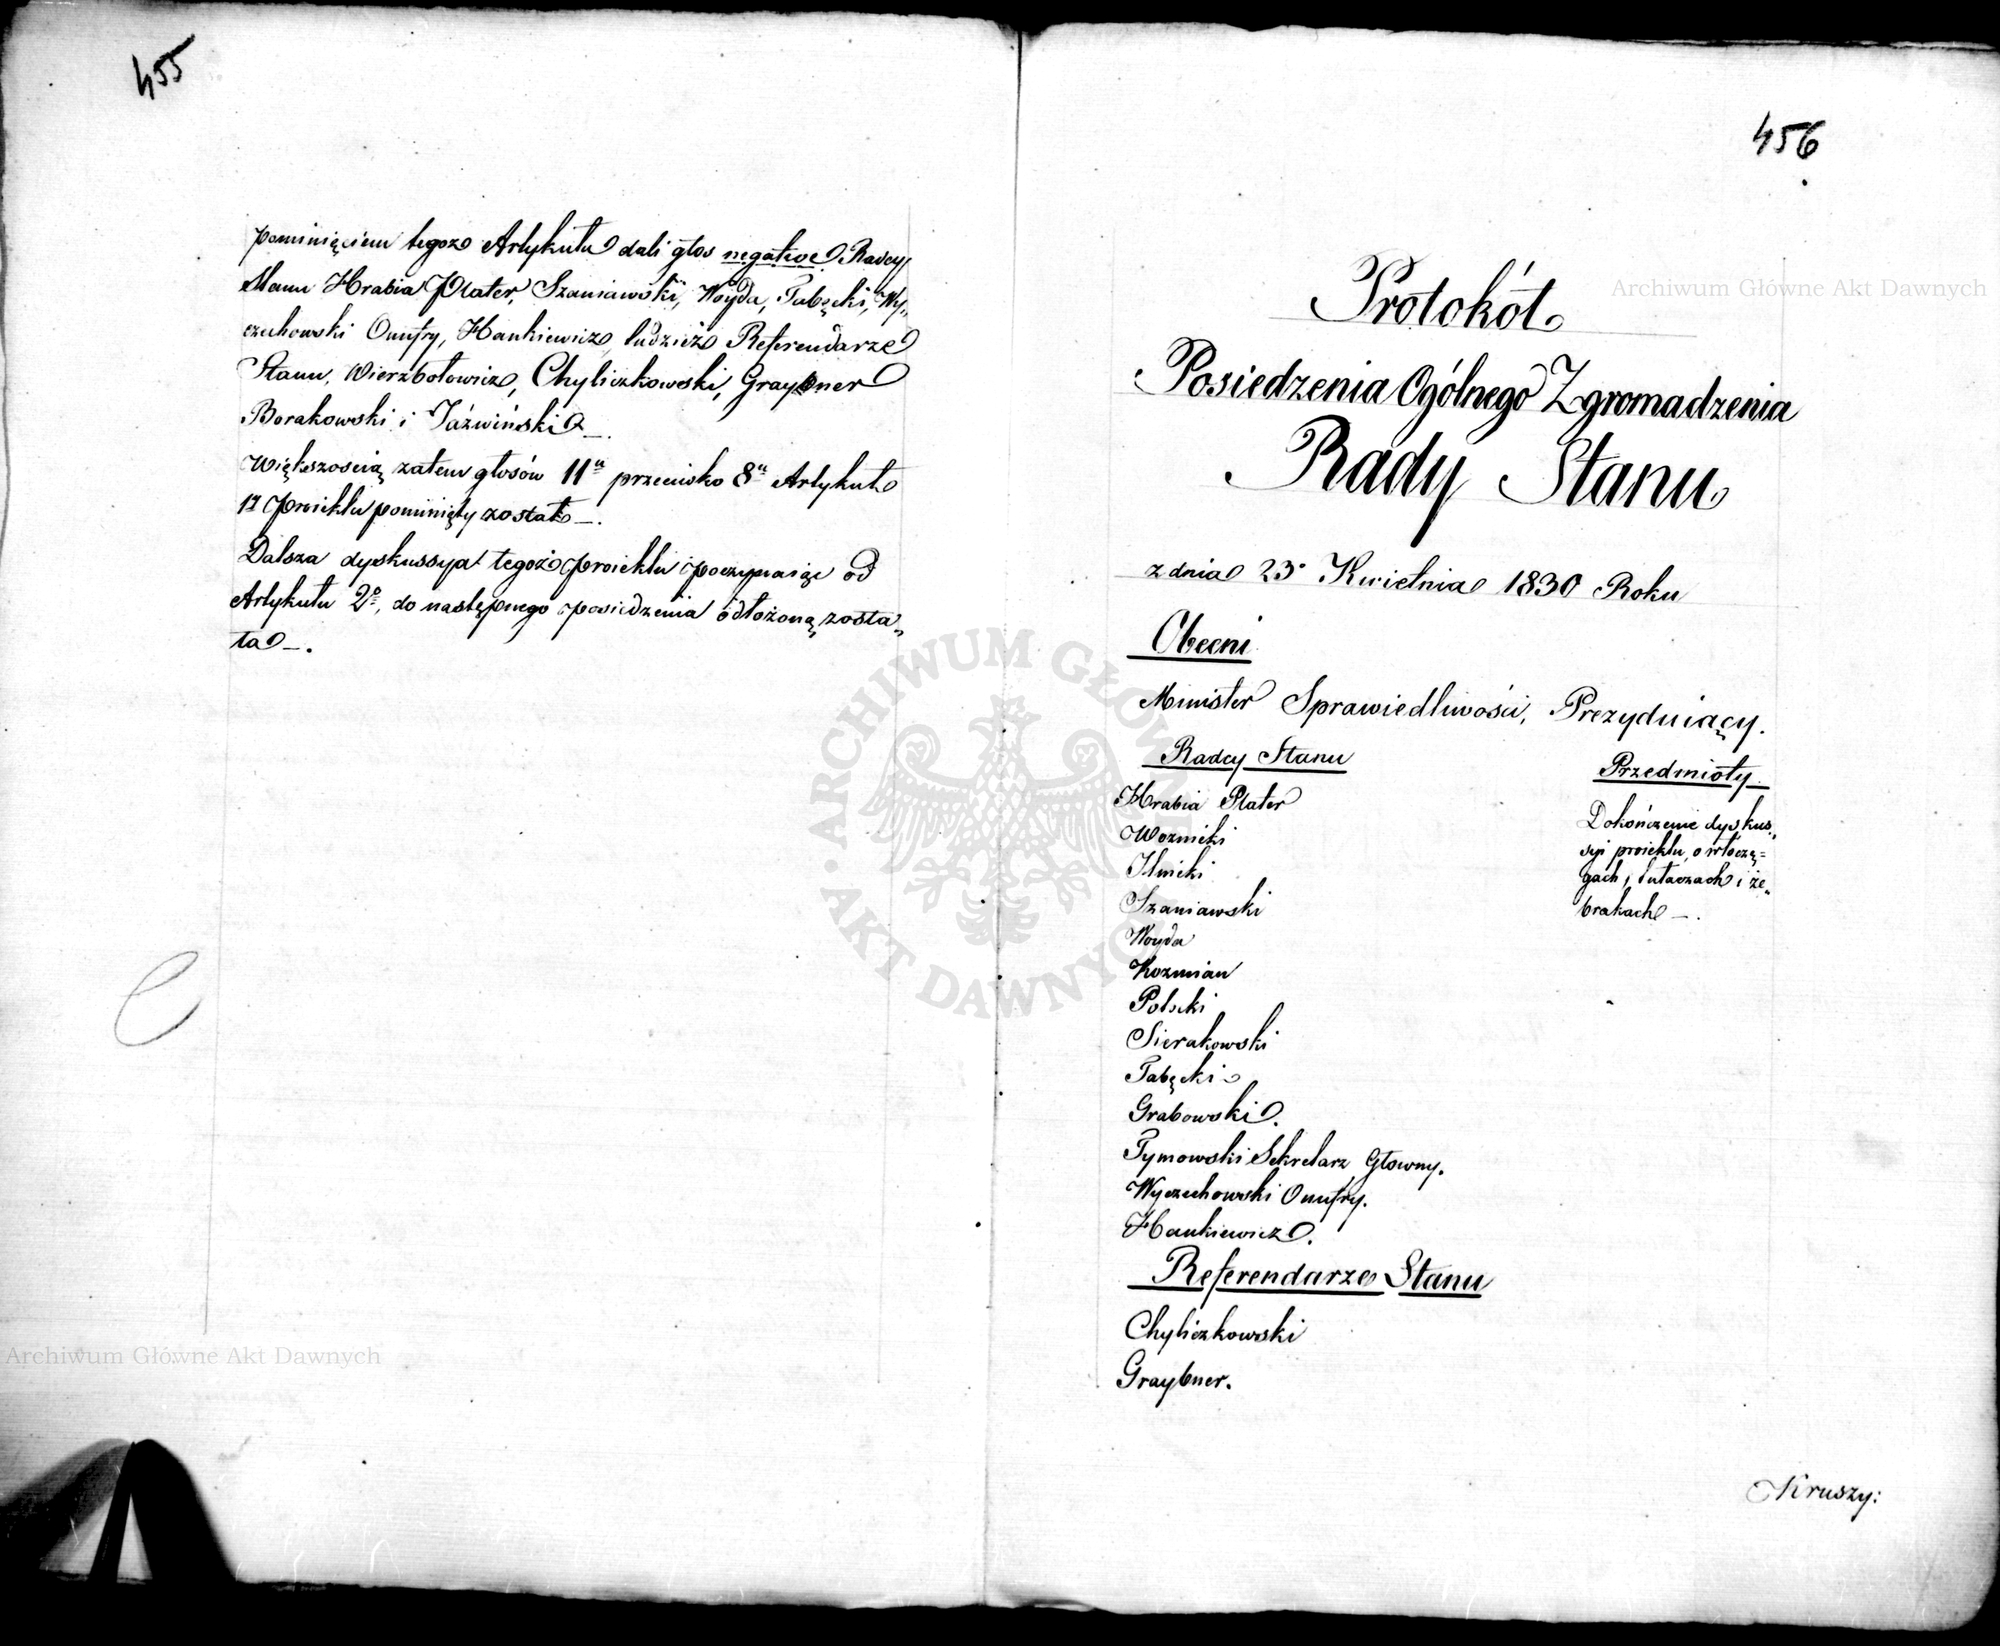 455
pominięciem tegoż Artykułu dali głos negative Radcy
Stanu Hrabia Plater, Szaniawski, Woyda, Tabęcki, Wy„
czechowski Onufry, Hankiewicz, tudzież Referendarze
Stanu, Wierzbołowicz, Chyliczkowski, Graybner
Borakowski i Jaźwiński —.
Większością zatem głosów 11u przeciwko 8u Artykuł
17 Proiektu pominięty został —.
Dalsza dyskussya tegoż proiektu poczynaiąc od
Artykułu 2o, do następnego posiedzenia odłożoną zosta„
ła —.
Archiwum Główne Akt Dawnych
456
Archiwum Główne Akt Dawnych
Protokół
Posiedzenia Ogólnego Zgromadzenia
Rady Stanu
z dnia 23 Kwietnia 1830 Roku
Obecni
Minister Sprawiedliwości, Prezyduiący.
Radcy Stanu
Hrabia Plater
Woznicki
Ilinicki
Szaniawski
Woyda
Kozmian
Potocki
Sierakowski
Tabęcki
Grabowski.
Tymowski Sekretarz Głowny.
Wyczechowski Onufry.
Hankiewicz.
Referendarze Stanu
Chyliczkowski
Graybner.
Przedmioty
Dokończenie dyskus„
syi proiektu, o włoczę=
gach, tułaczach i że„
brakach —.
Kruszy:
ARCHIWUM GŁÓWNE AKT DAWNYCH